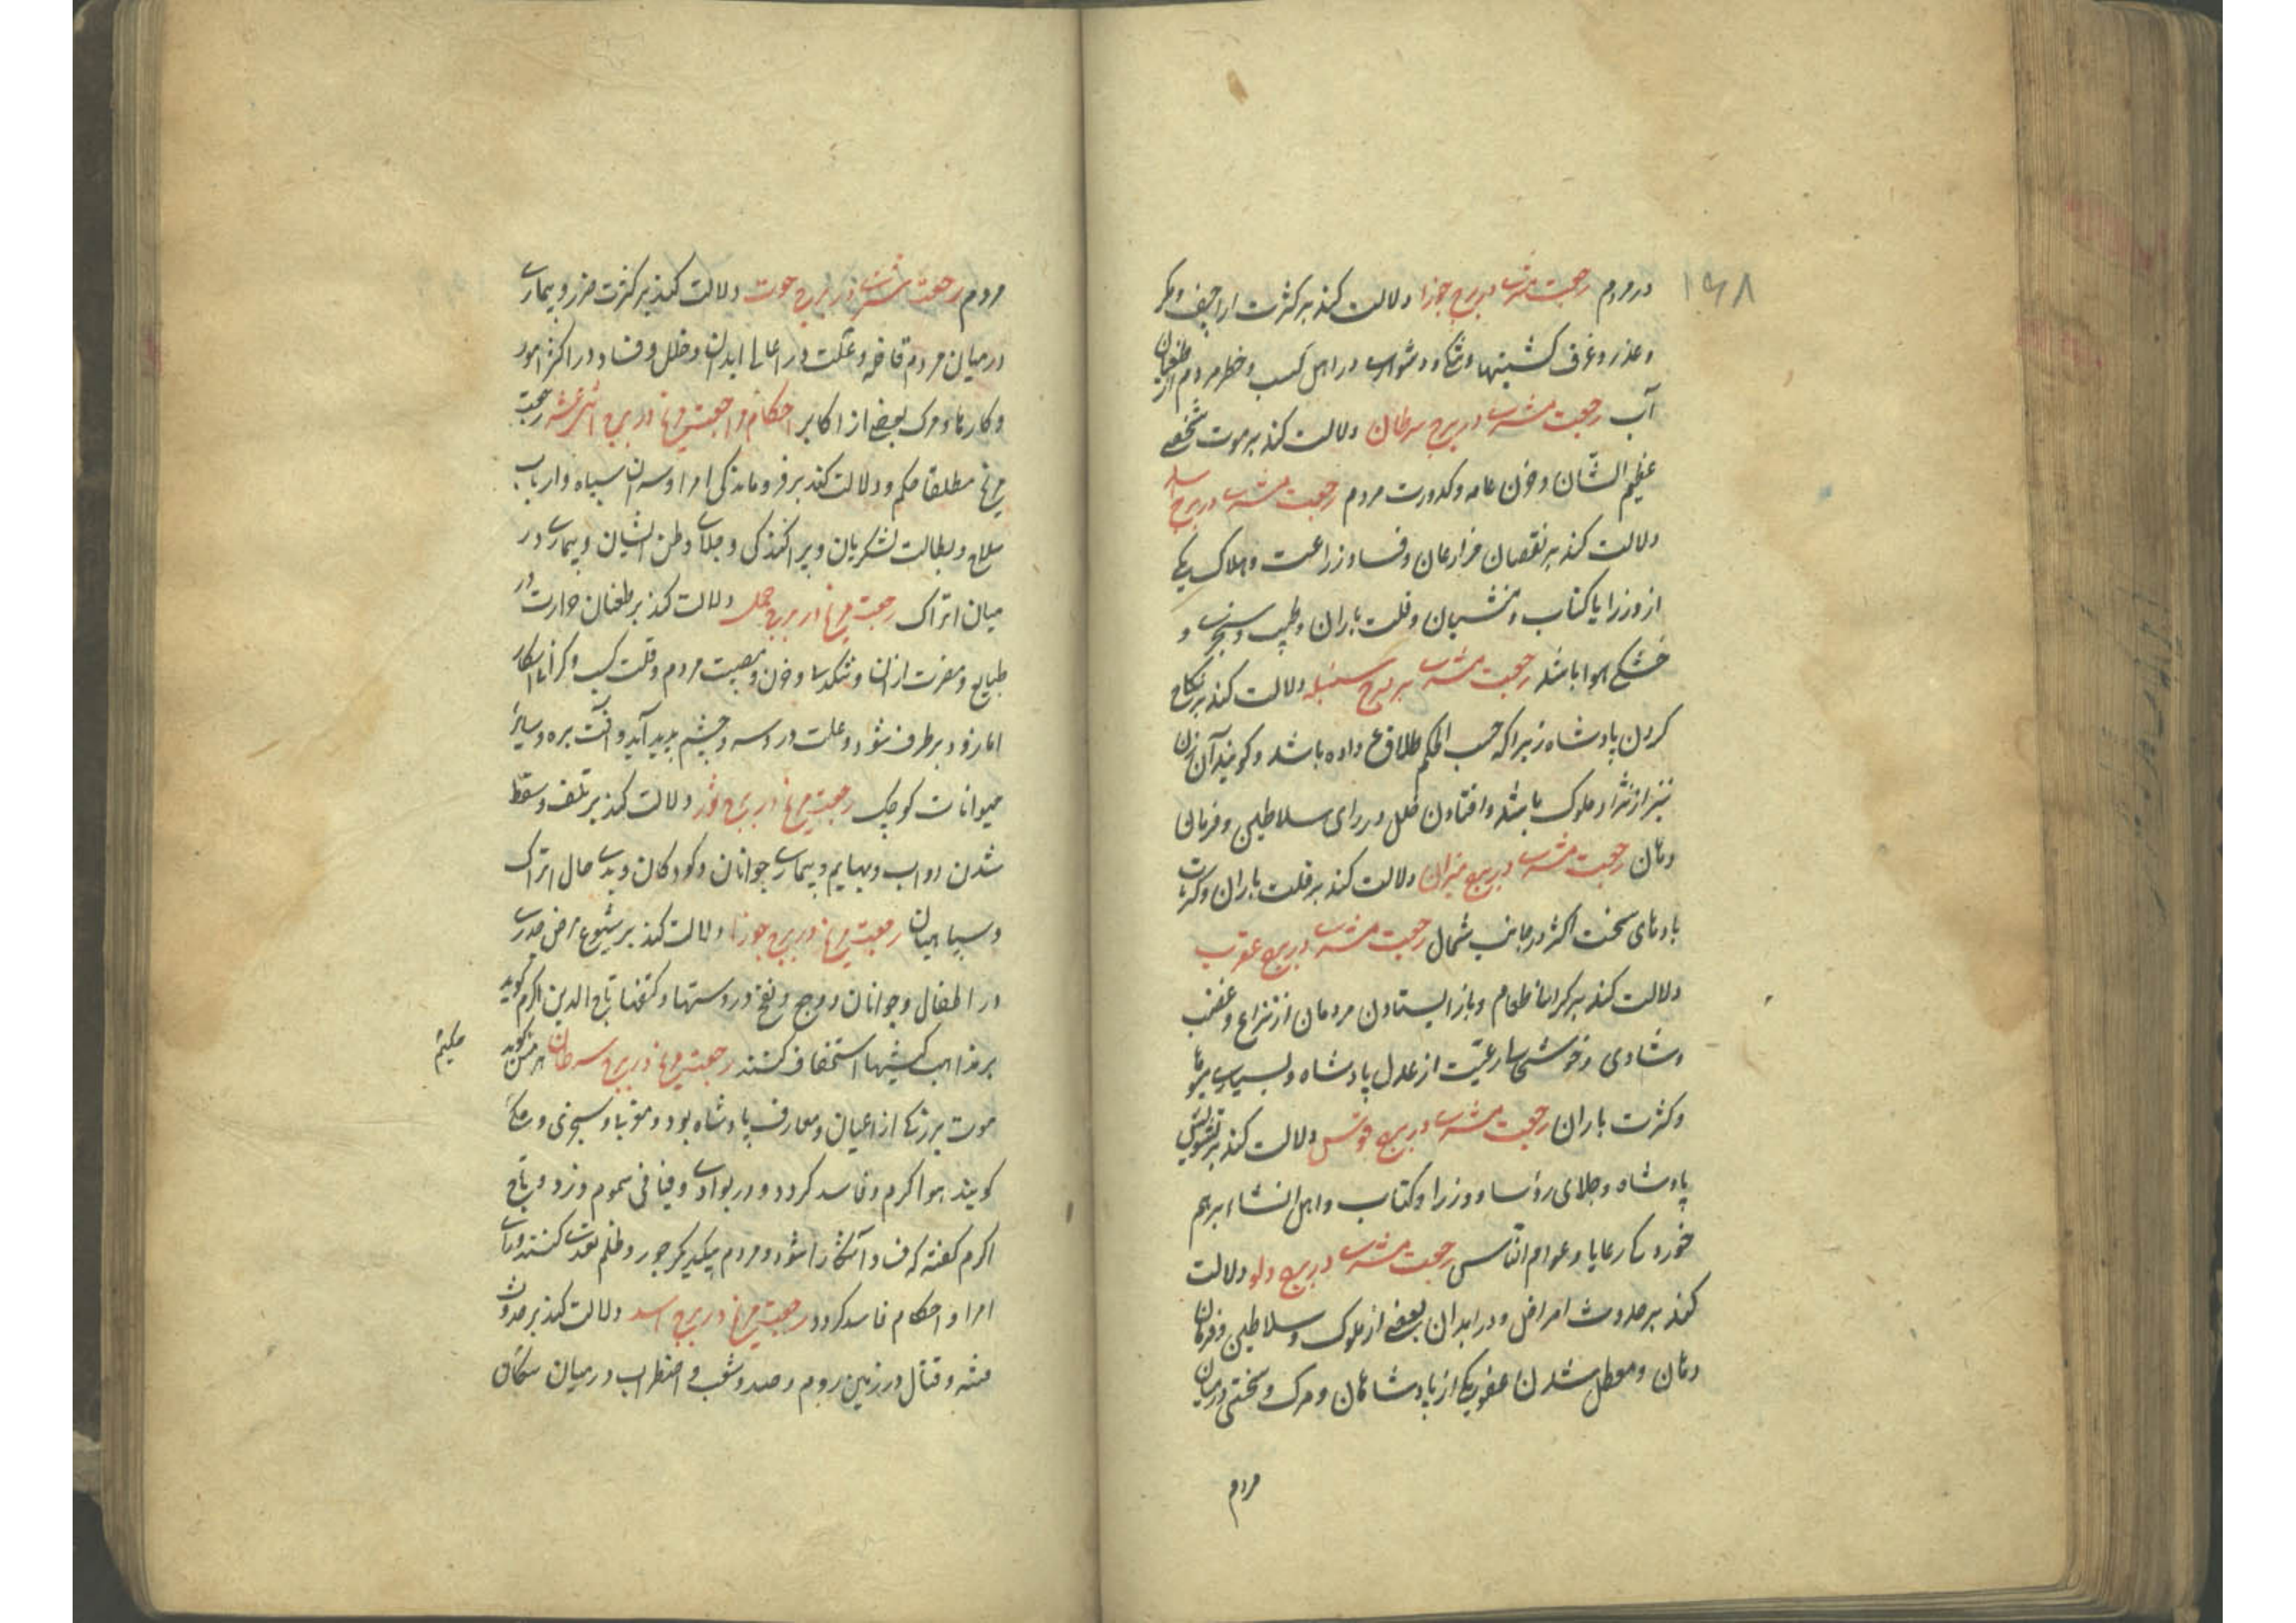 ۱۶۸
در مردم رجعت مشتری در برج جوزا دلالت کند بر کثرت اراجیف و مکر
و عذر و غرق کشتیها و دشواری در اهل کسب و خطر مردم از طغیان
آب رجعت مشتری در برج سرطان دلالت کند بر موت شخصی
عظیم الشان و خون عامه و کدورت مردم رجعت مشتری در برج اسد
دلالت کند بر نقصان مزارعان و فساد زراعت و هلاک یکی
از وزرا یا کتاب و منشیان و قلت باران و طبیب و منجم و
خشکی هوا باشد رجعت مشتری بر برج سنبله دلالت کند بر نکاح
کردن پادشاه زیرا که حسب الحکم طلاق داده باشد و گویند آن زن
نیز از نژاد ملوک باشد و افتادن خلل در رای سلاطین و فرمان
دهان رجعت مشتری در برج میزان دلالت کند بر قلت باران و کثرت
بادهای سخت اکثر در جانب شمال رجعت مشتری در برج عقرب
دلالت کند بر کرانی طعام و باز ایستادن مردمان از نزاع و غضب
و شادی و خوشی رعیت از عدل پادشاه و بسیاری میوها
و کثرت باران رجعت مشتری در برج قوس دلالت کند بر تشویش
پادشاه و جلای رؤسا و وزرا و کتاب و اهل انشا بر هم
خوردن کار رعایا و عوام الناس رجعت مشتری در برج دلو دلالت
کند بر حدوث امراض و در ابدان بعضی از ملوک و سلاطین و فرمان
دهان و معطل شدن عضو یکی از پادشاهان و مرک و سختی در میان
مردم
مردم رجعت مشتری در برج حوت دلالت کند بر کثرت ضرر و بیماری
در میان مردم و علت در اعالی ابدان و خلل و فساد در اکثر امور
و کارها و مرک بعضی از اکابر احکام رجعت مریخ در بروج اثنی عشر رجعت
مریخ مطلقا حکم و دلالت کند بر فروماندکی امرا و سران سپاه و ارباب
سلاح و بطالت لشکریان و پراکندکی و جلای وطن ایشان و بیماری در
میان اتراک رجعت مریخ در برج حمل دلالت کند بر طغیان حرارت در
طبایع و مضرت از ان و خون و مصیبت مردم و قلت کسب و کرانی اسعار
اما زود بر طرف شود و علت در سر و چشم پدید آید و آفت بره و سایر
حیوانات کوچک رجعت مریخ در برج ثور دلالت کند بر تلف و سقط
شدن دواب و بهایم و بیماری جوانان و کودکان و بدی حال اتراک
و سپاهیان رجعت مریخ در برج جوزا دلالت کند بر شیوع مرض جدری
در اطفال و جوانان و وجع و نفخ در دستها و کتفها تاج الدین اکرم کوید
بر مذاهب کیشها استخفاف کنند رجعت مریخ در برج سرطان هرمس کوید
حکیم
موت بزرکی از اعیان و معارف پادشاه بود و سجزی و
کویند هوا کرم و فاسد کردد و در بوادی و فیافی سموم وزد و تاج
اکرم کفته که فساد آشکارا شود و مردم بیکدیکر جور و ظلم تعدی کنند و رای
امرا و احکام فاسد کردد رجعت مریخ در برج اسد دلالت کند بر حدوث
فتنه و قتال در زمین روم و شغب و اضطراب در میان سکان